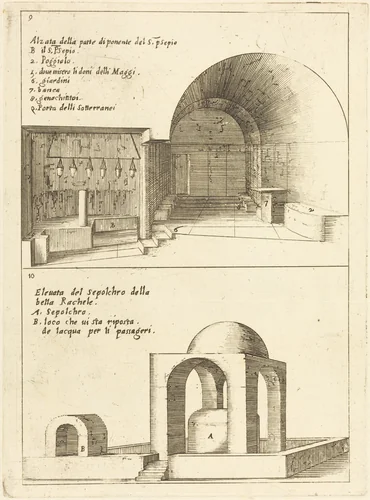 9
Alzata della parte di ponente del S. pSepio
B il S. pSepio.
2. Poggiolo.
5. doue missero li doni delli Maggi.
6. giardini
7. banca
8. genochiatoi.
9. Porta delli Sotterranei
10
Eleuata del Sepolchro della
bella Rachele.
A. Sepolchro.
B. loco che ui sta riposta.
de lacqua per li passageri.
B
A